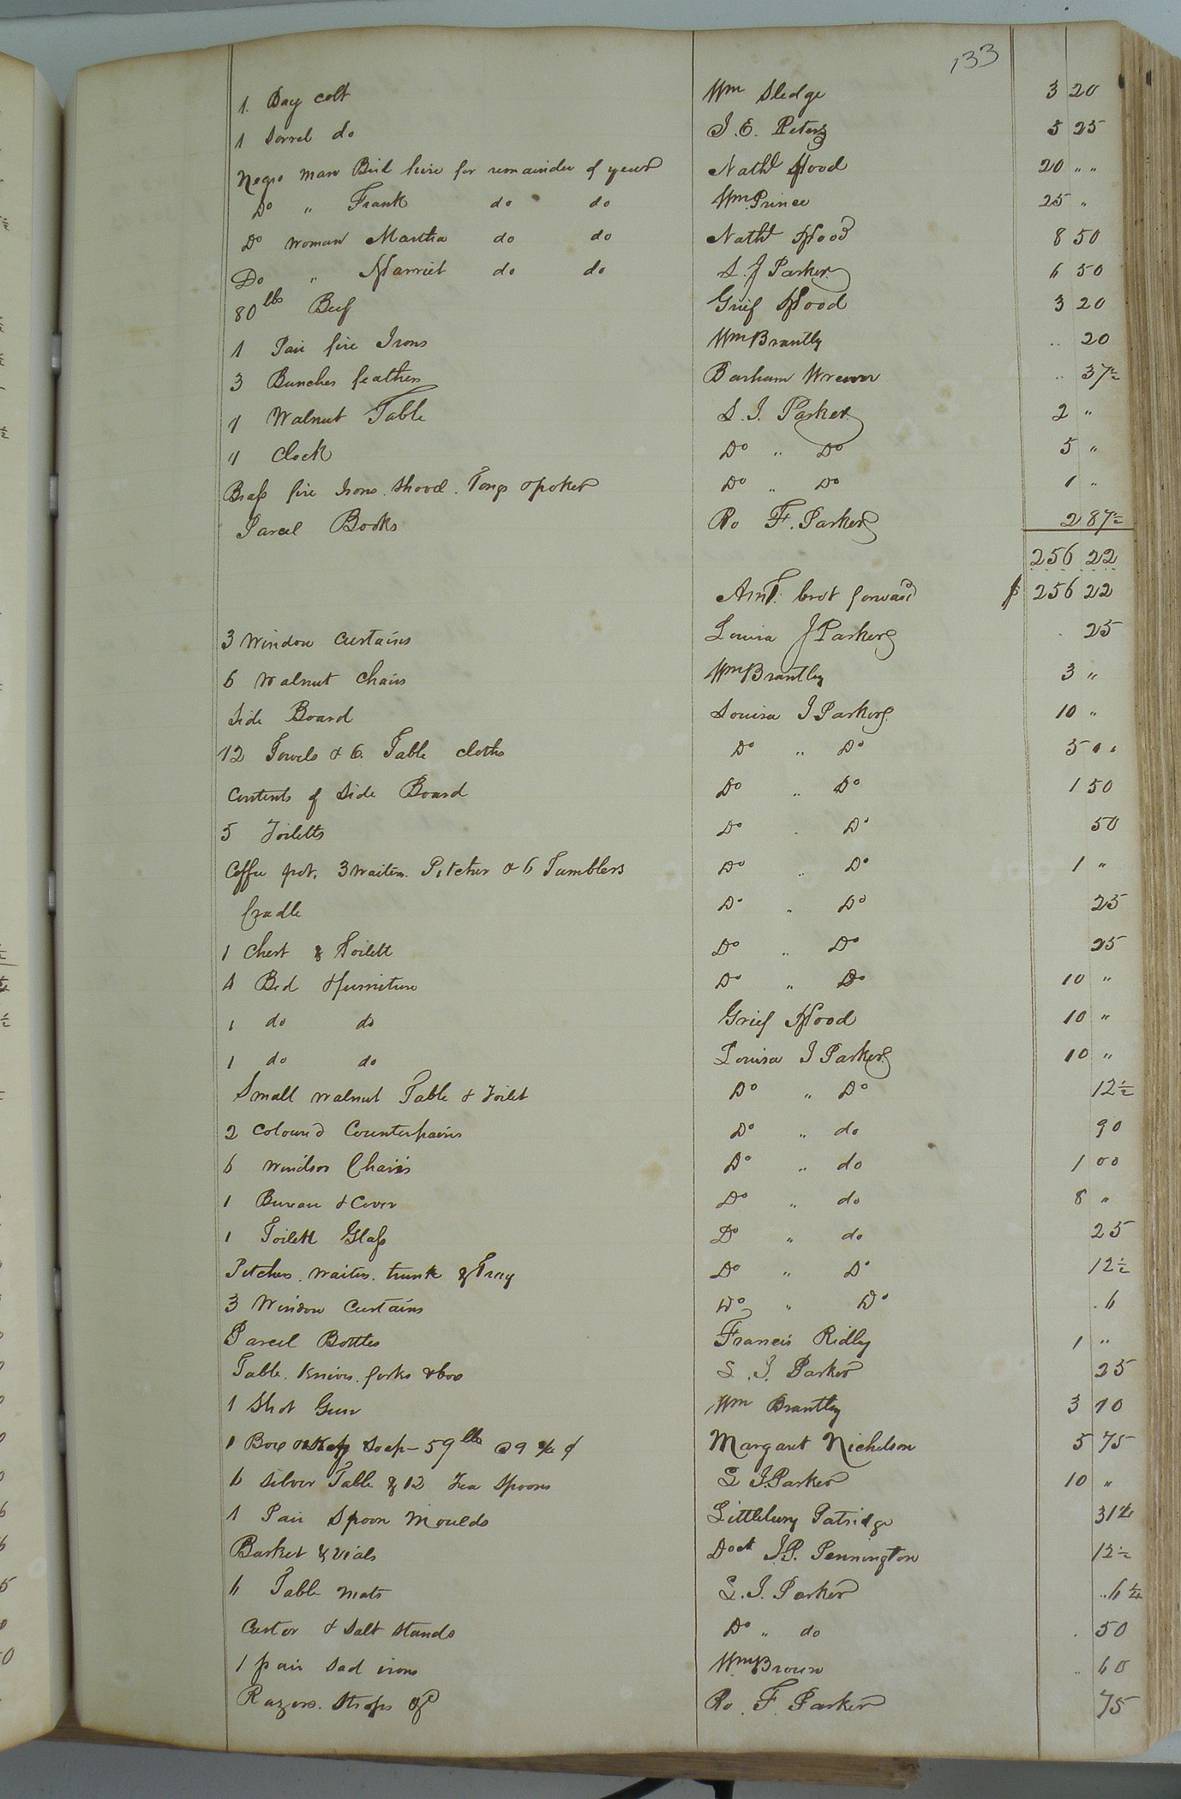 133
1 Bay colt Wm Sledge 3 20
1 Sorrel do J. E. Peters 5 25
Negro man Bird hire for remainder of year Nathl Hood 20 " "
Do " Frank do do Wm Prince 25 "
Do woman Martha do do Nathl Hood 8 50
Do " Harriet do do L. J Parker 6 50
80 lbs Beef Grief Hood 3 20
1 Pair fire Irons Wm Brantly .. 20
3 Bunches feathers Barham .. 37½
1 Walnut Table L. J. Parker 2 "
1 Clock Do " Do 5 "
Brass fire Irons. Shovel. Tongs & poker Do " Do 1 "
Parcel Books Ro F. Parker 2 87½
256 22
Amt. brot forward $ 256 22
3 Window Curtains Louisa J Parker . 25
6 Walnut Chairs Wm Brantley 3 "
Side Board Louisa J Parker 10 "
12 Towels & 6 Table cloths Do " Do 5 "
Contents of Side Board Do " Do 1 50
5 Toiletts Do " Do 50
Coffee pot, 3 waiters. Pitcher & 6 Tumblers Do " Do 1 "
Cradle Do " Do 25
1 Chest & Toilett Do " Do 25
1 Bed & furniture Do " Do 10 "
1 do do Grief Hood 10 "
1 do do Louisa J Parker 10 "
Small walnut Table & Toilet Do " Do 12½
2 Coloured Counterpains Do " do 90
6 Windsor Chairs Do " do 1 00
1 Bureau & Cover Do " do 8 "
1 Toilett Glass Do " do 25
Pitcher. Waiter. trunk & Tray Do " Do 12½
3 Window Curtains Do " Do . 6
Parcel Bottles Francis Ridley 1 "
Table. Knives. forks & box L. J. Parker 25
1 Shot Gun Wm Brantley 3 10
1 Box Soap - 59 lbs @ 9 ¾ ¢ Margaret Nicholson 5 75
6 Silver Table & 12 Tea Spoons L J. Parker 10 "
1 Pair Spoon Moulds Littlebury Patridge 31¼
Basket & Vials Doct J. P. Pennington 12½
6 Table mats L. J. Parker .. 6¼
Castor & Salt stands Do " do . 50
1 pair Sad irons Wm Brown .. 60
Razors. Strops &c Ro. F. Parker 75